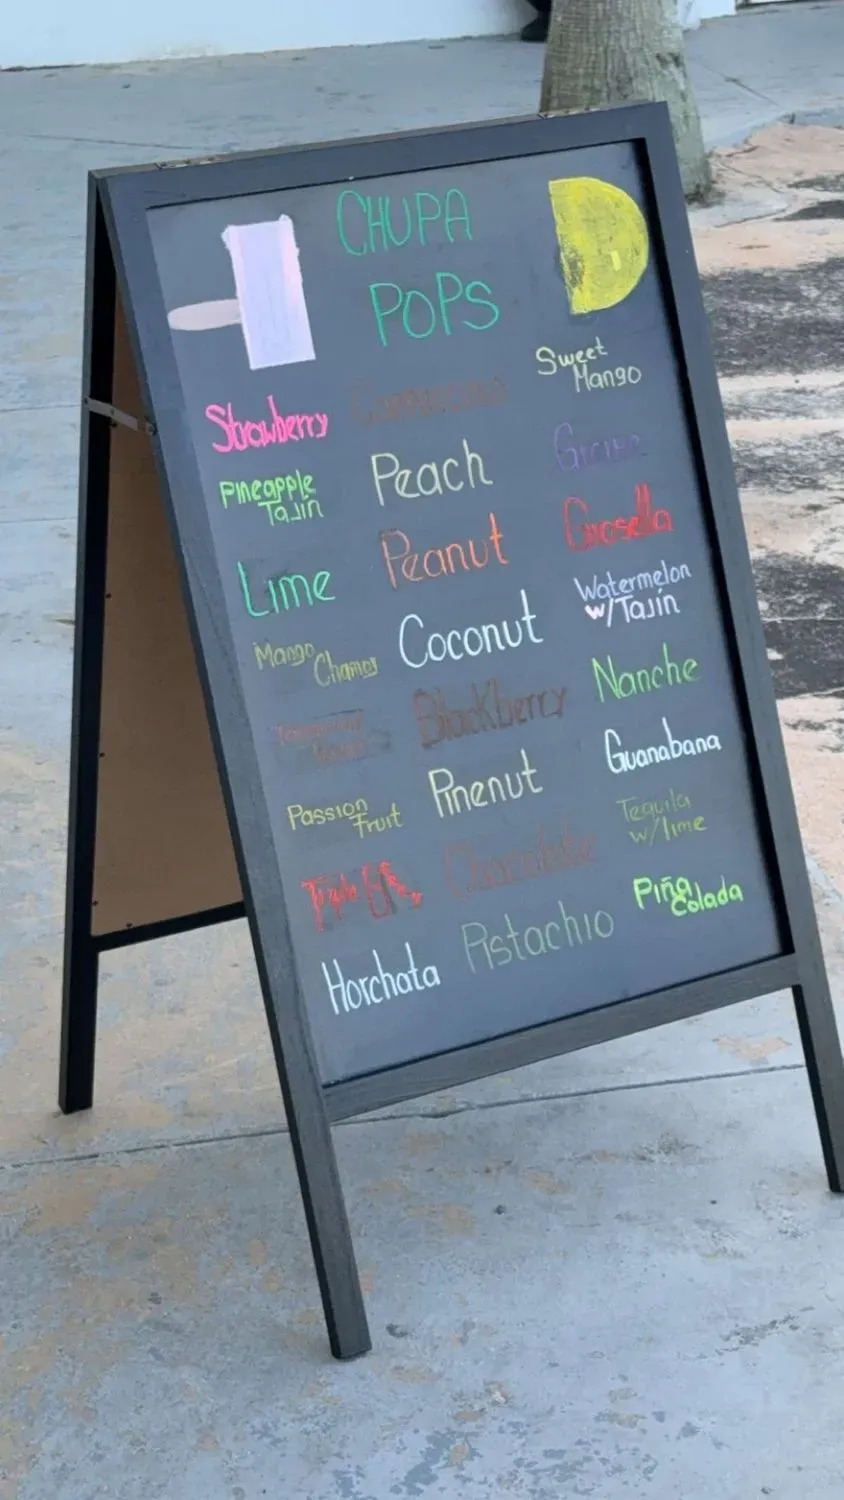 CHUPA
POPS
Strawberry
Pineapple
Tajin
Lime
Mango
Chamoy
Passion
Fruit
Triple
Horchata
Peach
Peanut
Coconut
Blackberry
Pinenut
Chocolate
Pistachio
Sweet
Mango
Grosella
Watermelon
w/Tajín
Nanche
Guanabana
Tequila
w/lime
Piña
Colada